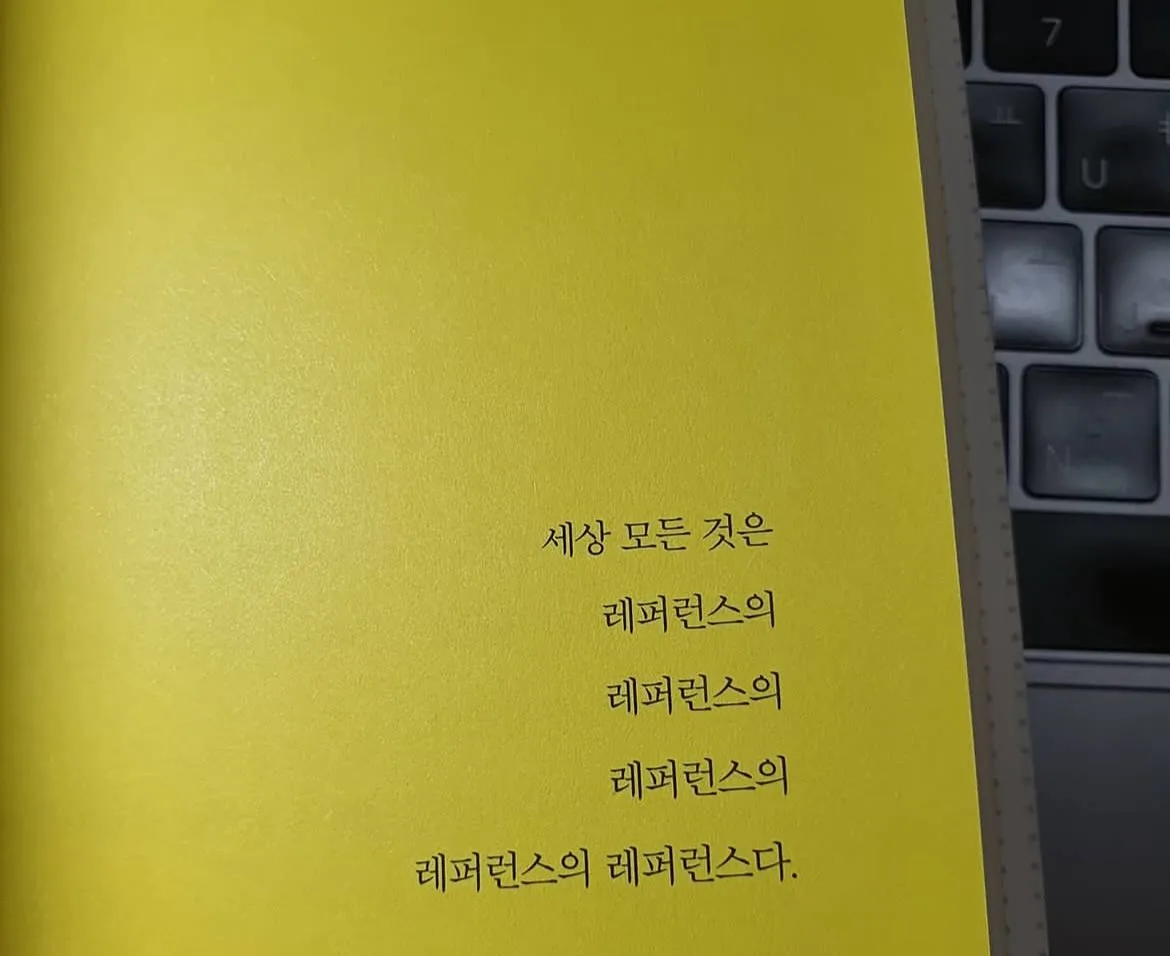 세상 모든 것은
레퍼런스의
레퍼런스의
레퍼런스의
레퍼런스의 레퍼런스다.
7
ㅛ
U
N